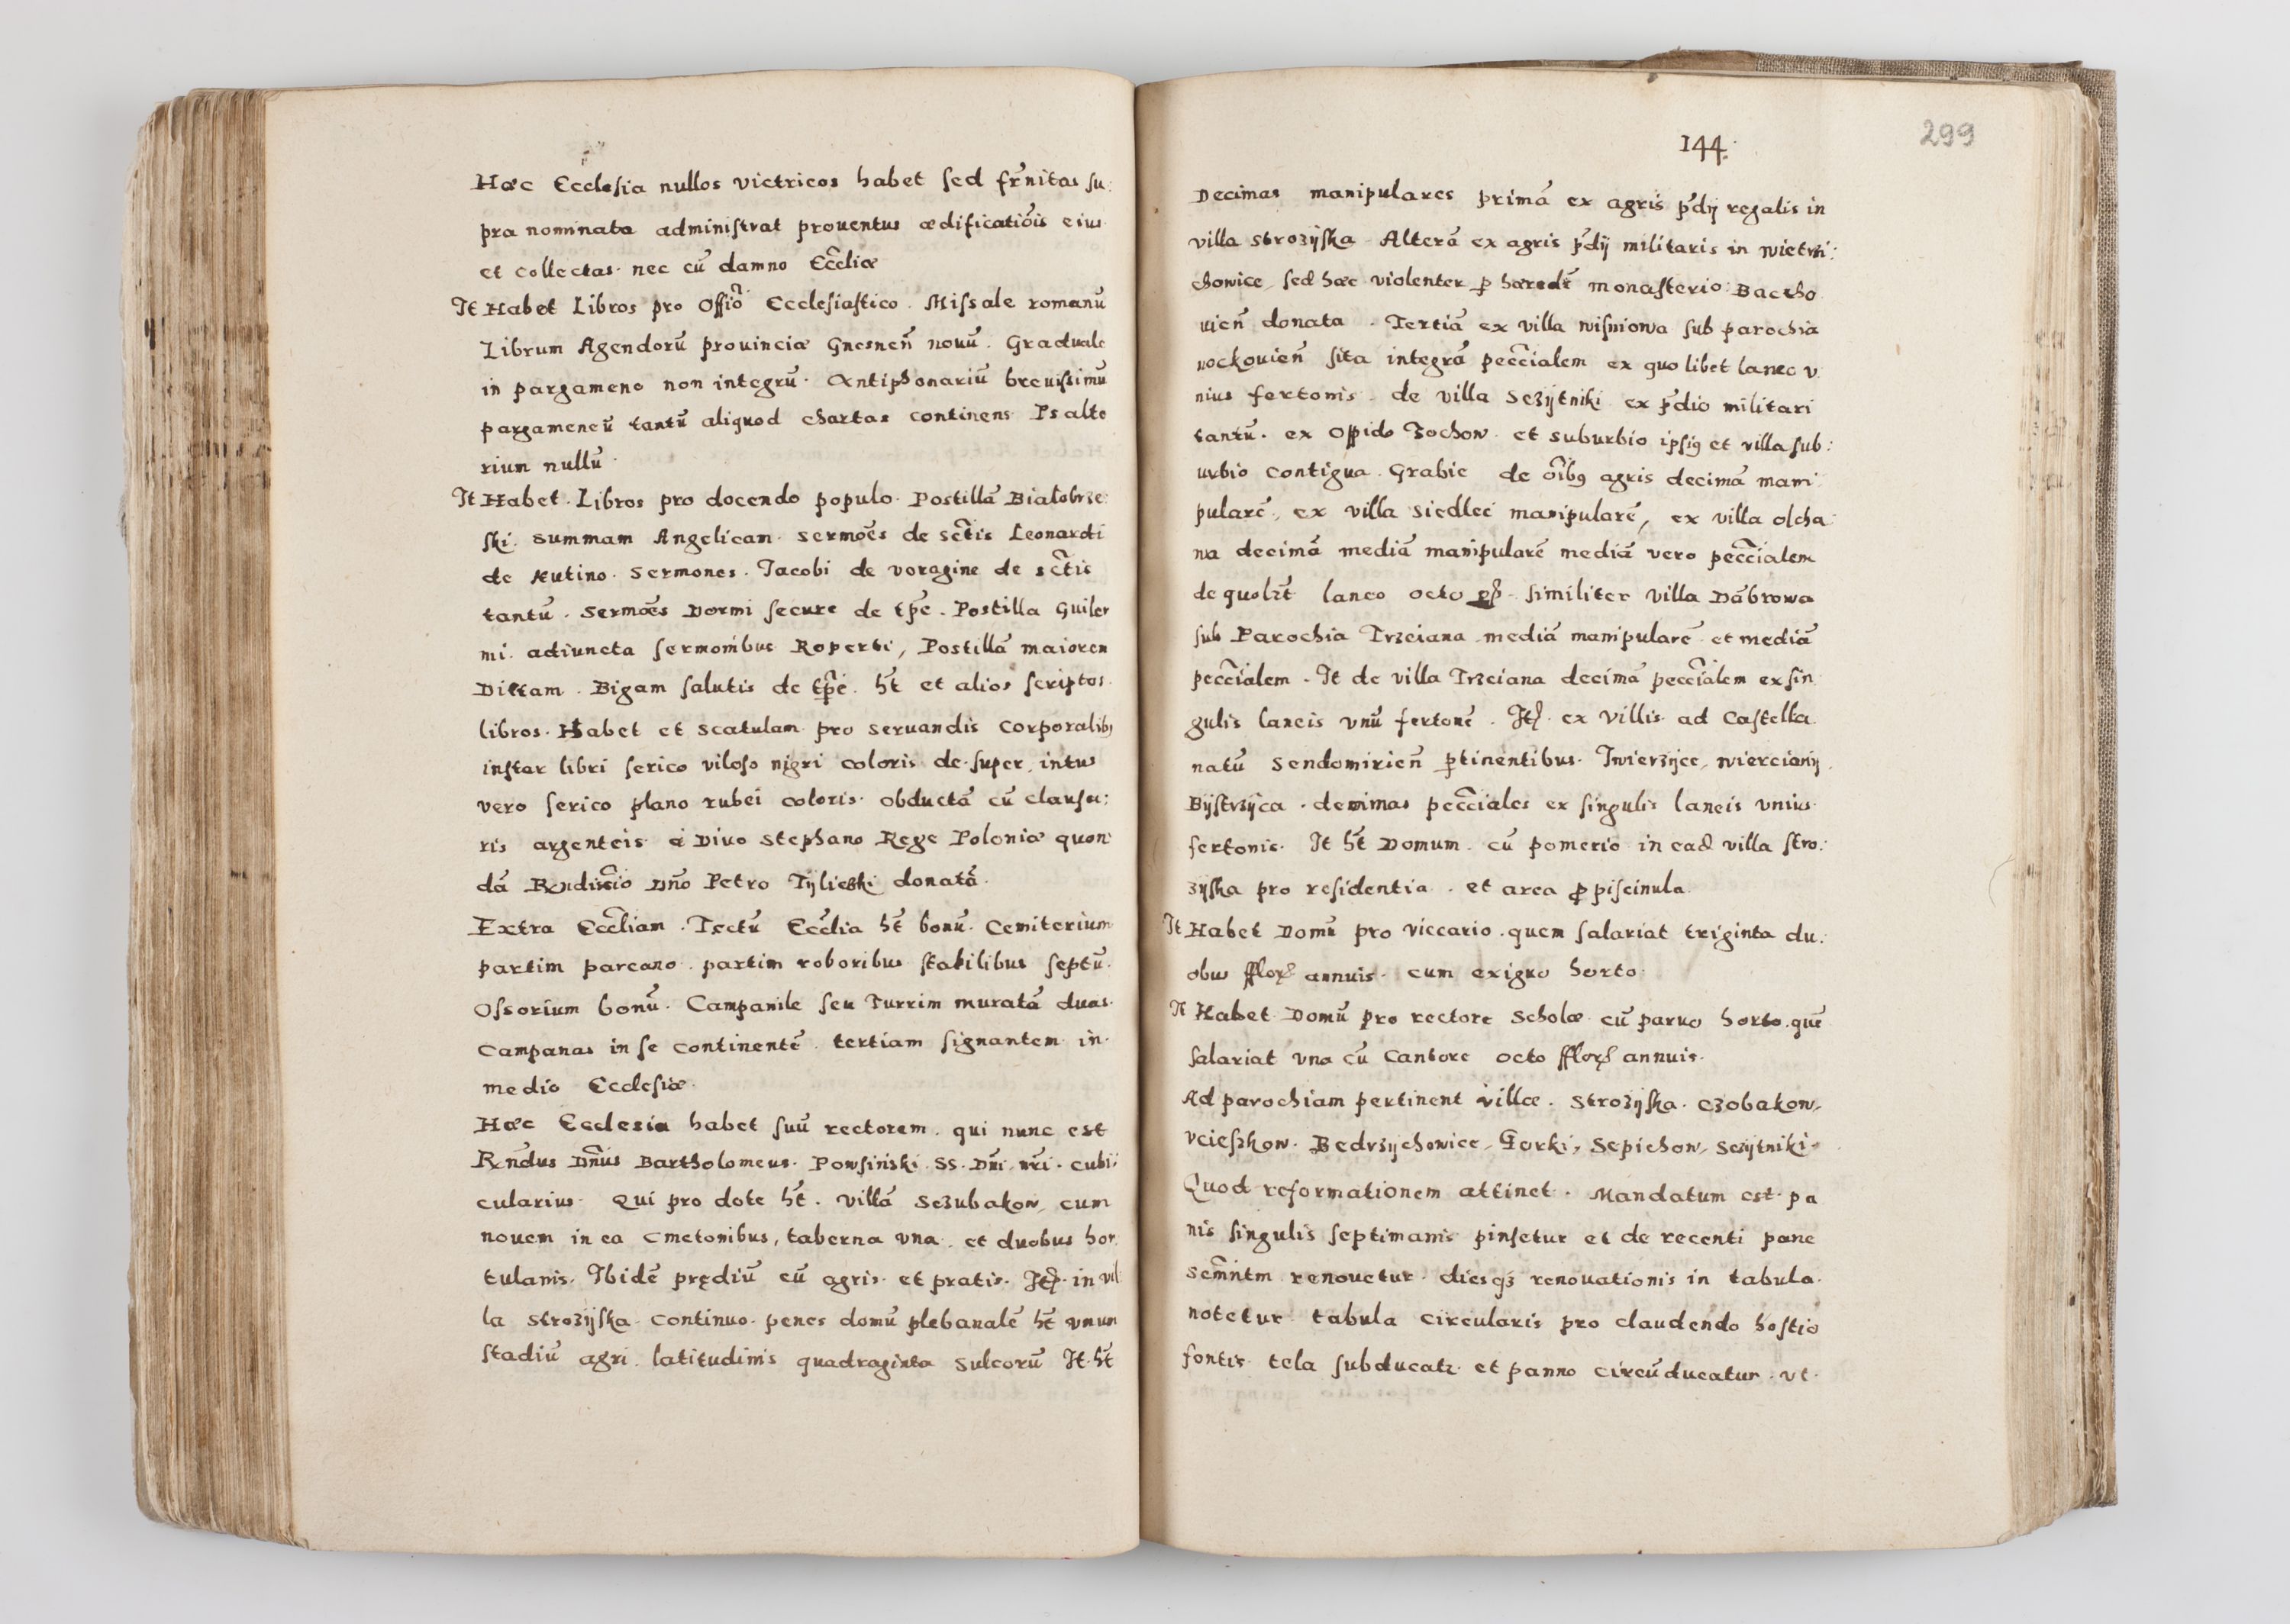 Hæc Ecclesia nullos victricos habet sed fr̃nitas su:
pra nominata administrat prouentus ædificatiõis eius
et collectas. nec cũ damno Eccliæ
It Habet Libros pro Offiõ Ecclesiastico. Missale romanũ
Librum Agendorũ prouinciæ Gnesneñ nouũ. Graduale
in pargameno non integrũ. Antiphonariũ breuissimũ
pargameneũ tantũ aliquod chartas continens Psalte
rium nullũ.
It Habet. Libros pro docendo populo. Postillã Białobrze:
ski. Summam Angelicam. Sermões de sctis Leonardi
de Utino. Sermones. Jacobi de voragine de sctis
tantũ. Sermões Dormi secure de tp̃e. Postilla Guiler
mi. adiuncta sermonibus Roperti, Postillã maiorem
Dictam. Bigam salutis de tp̃e. ht̃ et alios scriptos
libros. Habet et scatulam pro seruandis corporalibꝫ
instar libri serico viloso nigri coloris de super, intus
vero serico plano rubei coloris. obductã cũ clausu:
ris argenteis a Diuo Stephano Rege Poloniæ quon
dã Rndissio Dño Petro Tÿlicski donatã.
Extra Eccliam. Tectũ Ecclia ht̃ bonũ. Cemiterium
partim parcano. partim roboribus stabilibus septũ.
Ossorium bonũ. Campanile seu Turrim muratã duas.
Campanas in se continentẽ. tertiam signantem in.
medio Ecclesiæ.
Hæc Ecclesia habet suũ rectorem. qui nunc est
Rñdus Dñus Bartholomeus. Powsinski. SS. Dñi. nr̃i. cubi:
cularius. Qui pro dote ht̃. villã Sczubakow, cum
nouem in ea Cmetonibus, taberna vna. et duobus hor
tulanis. Ibidẽ prędiũ cũ agris. et pratis. Itꝫ. in vil
la Strozÿska. continuo. penes domũ plebanalẽ ht̃ vnum
stadiũ agri. latitudinis quadraginta sulcorũ It. ht̃
299
144.
Decimas manipulares primã ex agris p̃dÿ regalis in
villa Strozÿska. Alterã ex agris p̃dÿ militaris in Wietrzi:
chowice, sed hæc violenter ꝑ hæredẽ monasterio. Baccho
uieñ donata. Tertiã ex villa Wisniowa sub parochia
uockouieñ sita integrã pecc̃ialem ex quo libet laneo v
nius fertonis. de villa Sczÿtniki ex p̃dio militari
tantũ. ex Oppido Zochow. et suburbio ipsiꝰ et villa sub:
urbio contigua. Grabie de oĩbꝫ agris decimã mani
pularẽ, ex villa Siedlec manipularẽ, ex villa olcha:
wa decimã mediã manipularẽ mediã vero pecc̃ialem
de quolzt laneo octo gṝ. similiter villa Dãbrowa
sub Parochia Trzciana mediã manipularẽ et mediã
pecc̃ialem. It de villa Trzciana decimã pecc̃ialem ex sin
gulis laneis vnũ fertonẽ. Itꝫ. ex villis ad Castella
natũ Sendomirieñ ꝑtinentibus. Twierzÿce, Wiercianÿ
Bÿstrzÿca. decimas pecc̃iales ex singulis laneis vnius
fertonis. It ht̃ Domum. cũ pomerio in eađ villa Stro:
zÿska pro residentia. et area ꝓ piscinula.
It Habet Domũ pro viccario. quem salariat triginta du:
obus fflorꝫ annuis. cum exiguo horto.
It Habet Domũ pro rectore Scholæ cũ paruo horto. quẽ
salariat vna cũ Cantore octo fflorꝫ annuis.
Ad parochiam pertinent villæ. Strozÿska. Czobakow,
Vcieszkow. Bedrzÿchowice, Gorki, Sępichow, Sczÿtniki.
Quod reformationem attinet. Mandatum est. pa
nis singulis septimanis pinsetur et de recenti pane
Scm̃ntm renouetur. diesqꝫ renouationis in tabula.
notetur tabula circularis pro claudendo hostio
fontis tela subducatr. et panno circũducatur. vt.